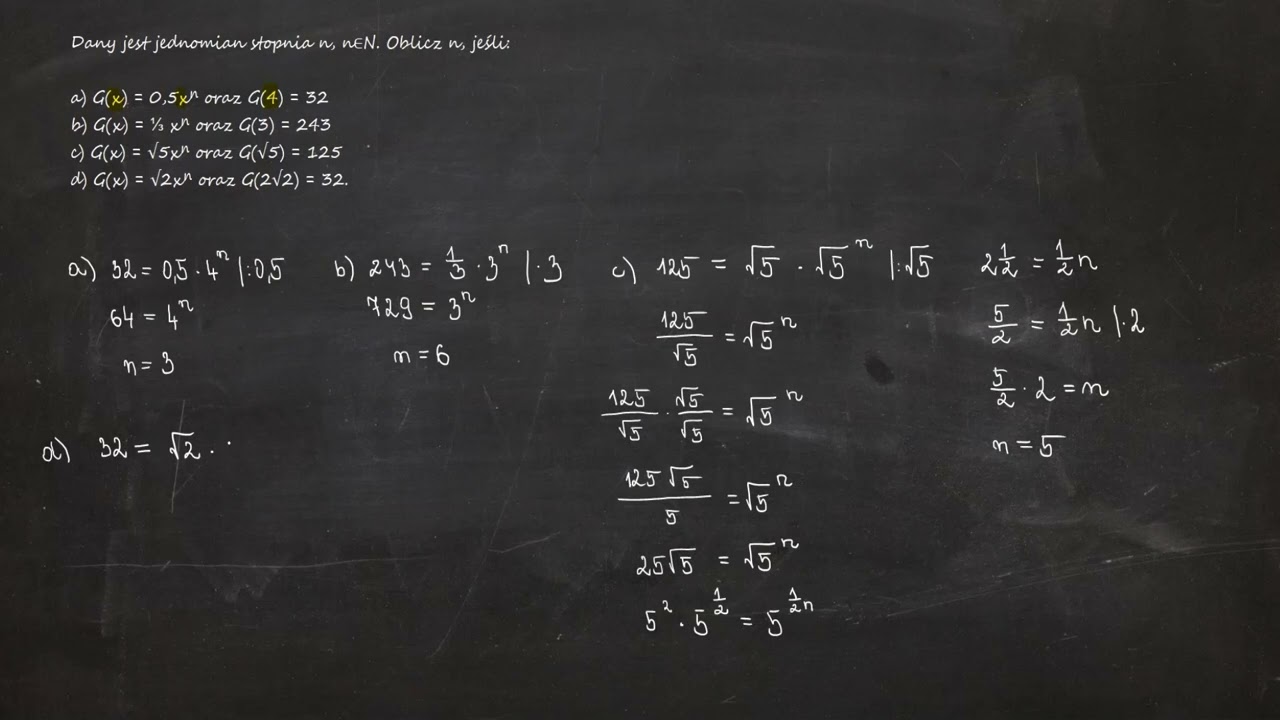 Dany jest jednomian stopnia n, n∈N. Oblicz n, jeśli:
a) G(x) = 0,5xⁿ oraz G(4) = 32
b) G(x) = ⅓ xⁿ oraz G(3) = 243
c) G(x) = √5xⁿ oraz G(√5) = 125
d) G(x) = √2xⁿ oraz G(2√2) = 32.
a) 32 = 0,5 · 4ⁿ |:0,5
64 = 4ⁿ
n = 3
b) 243 = 1/3 · 3ⁿ | · 3
729 = 3ⁿ
n = 6
c) 125 = √5 · √5ⁿ |:√5
125/√5 = √5ⁿ
125/√5 · √5/√5 = √5ⁿ
125√5/5 = √5ⁿ
25√5 = √5ⁿ
5² · 5^(1/2) = 5^(1/2 n)
2 1/2 = 1/2 n
5/2 = 1/2 n | · 2
5/2 · 2 = n
n = 5
d) 32 = √2 ·